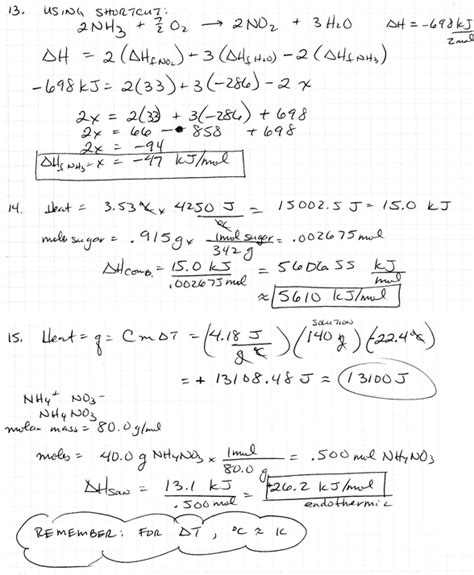 13. USING SHORTCUT:
2NH₃ + 7/2 O₂ → 2NO₂ + 3H₂O ΔH = -698 kJ/2mol
ΔH = 2(ΔHf NO₂) + 3(ΔHf H₂O) - 2(ΔHf NH₃)
-698 kJ = 2(33) + 3(-286) - 2x
2x = 2(33) + 3(-286) + 698
2x = 66 - 858 + 698
2x = -94
ΔHf NH₃ = x = -47 kJ/mol
14. Heat = 3.53 °C × 4250 J/°C = 15002.5 J = 15.0 kJ
mole sugar = .915 g × 1 mol sugar/342 g = .002675 mol
ΔHcomb. = 15.0 kJ/.002675 mol = 5606.55 kJ/mol
≈ 5610 kJ/mol
15. Heat = q = CmΔT = (4.18 J/g °C) (140 g) (-22.4 °C)
SOLUTION
= + 13108.48 J ≈ 13100 J
NH₄⁺ NO₃⁻
NH₄NO₃
molar mass = 80.0 g/mol
moles = 40.0 g NH₄NO₃ × 1 mol/80.0 g = .500 mol NH₄NO₃
ΔHsoln = 13.1 kJ/.500 mol = +26.2 kJ/mol
endothermic
REMEMBER: FOR ΔT, °C ≈ K